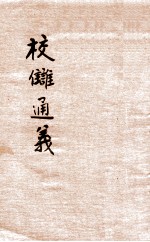 校讎通義